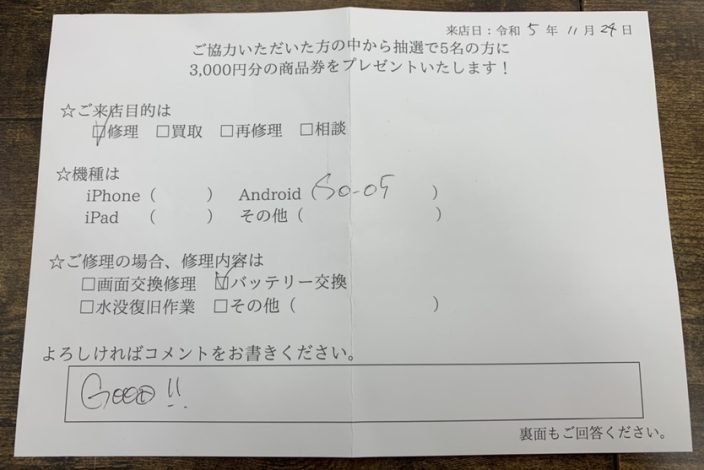 来店日：令和 5 年 11月 24日
ご協力いただいた方の中から抽選で5名の方に
3,000円分の商品券をプレゼントいたします！
☆ご来店目的は
☑修理 □買取 □再修理 □相談
☆機種は
iPhone（ ） Android（SO-05 ）
iPad （ ） その他（ ）
☆ご修理の場合、修理内容は
□画面交換修理 ☑バッテリー交換
□水没復旧作業 □その他（ ）
よろしければコメントをお書きください。
GOOD!!
裏面もご回答ください。